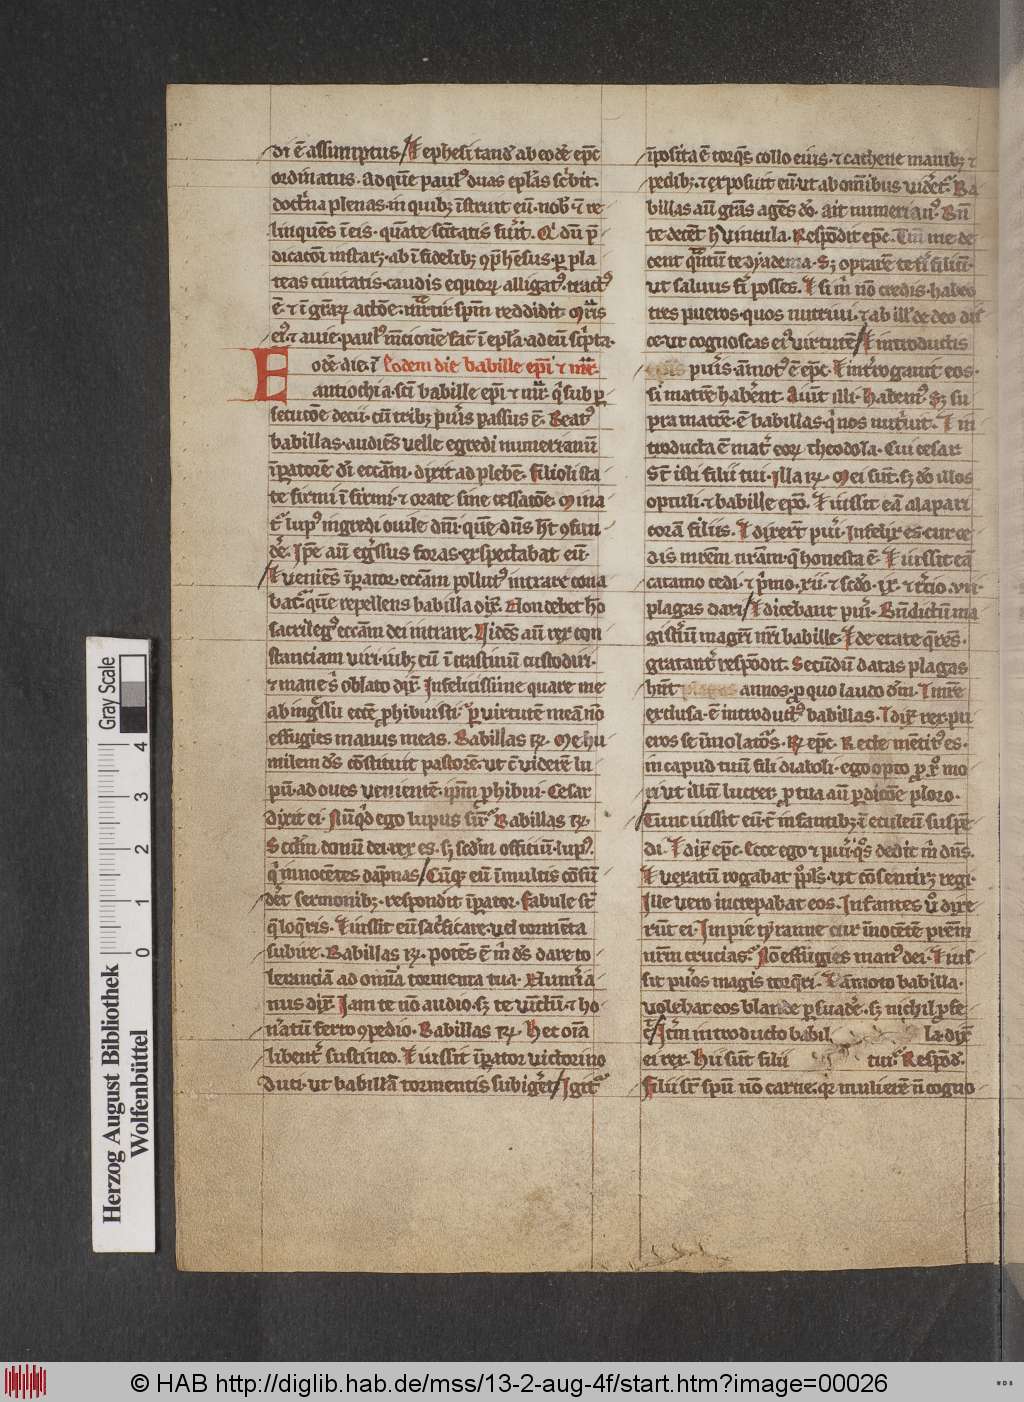 di ē assumptus / Et ephesi tand ab eodē epc
ordinatus. Ad quē paul' duas eplas scbit.
doctna plenas. in quib; īstruit eū. nob' ī re
linquens ī eis. quāte sctitatis fuit. Qi dū p
dicatōi instar; ab īfidelib; ɔphēsus. p pla
teas ciuitatis. caudis equorꝝ alligat'. tract'
ē. et ī grarꝝ actōe. martir spm reddidit.
ei'. et auie. paul' mtionē fac ī epla. ad eū scpta.
E odē die. Eodem die babille epi et mr.
antiochia. sci babille epi et mr. qi sub p
secutōe decii. cū trib; puis passus ē. Beat'
babillas. audies velle egredi numerianū
īpatorē dī eccam. dixit ad plebē. filioli sta
te firmi ī firmi. et orate sine cessatōe. mina
t' lup' ingredi ouile dni. quē dns ht ɔfun
de. Ipe aū egssus foras. expectabat eū.
Et veniēs īpator. eccam pollut' intrare cona
bat. quē repellens babilla dix. Non debet ho
sacrileg' eccam dei intrare. Vides aū rex con
stanciam viri. iub; eū ī crastinū custodiri.
et mane s oblato dix. Infelicissime quare me
ab ingssu eccē phibuisti. p virtutē meā nō
effugies manus meas. Babillas rꝝ. Me hu
milem ds cōstituit pastorē. ut cū viderē lu
pū. ad oues venientē. ipm phibui. Cesar
dixit ei. Nūqd ego lupus sū. Babillas rꝝ.
Scdm domū dei. rex es. s; scdm offitiū. lup'.
qi innocētes dāpnas / Cūqz eū ī multis cōsū
det sermonib;. respondit īpator. fabule st
q loqris. Et iussit eū sacficare. vel tormēta
subire. Babillas rꝝ. potēs ē m ds dare to
leranciā ad omia tormenta tua. Numia
nus dix. Iam te nō audio. s; te vīctū. et ho
natū ferro ɔpedio. Babillas rꝝ. Hec oīa
libent sustineo. Et iussit īpator victorino
duci. ut babillā tormentis subiget / Igit
īposita ē torqs collo eius. et cathene manib; et
pedib;. et exposuit eū. ut ab omibus videt. Ba
billas aū gras agēs do. ait numerian'. Bn
te decēt h vincula. Respōdit epc. Tm me de
cent qntū te dyadema. S; optarē te fi filiū.
ut saluus fi posses. Et si m nō credis. habeo
tres pueros. quos nutriui. et ab ill' de deo dis
ce. ut cognoscas ei' virtutē / Et introductis
puis. amot' ē epc. Et introgauit eos.
si matrē habent. Aiūt illi. habem'. S; su
pra matrē. ē babillas. q nos nutiuit. Et in
troducta ē mat eorꝝ theodola. Cui cesar
Sūt isti filii tui. Illa rꝝ. Mei sūt. s; do illos
optuli. et babille epo. Et iussit eā alapari
corā filiis. Et dixerūt pui. Infelix es. cur ce
dis mrem nram. q honesta ē. Et iussit eā
catamo cedi. et pmo. xii. et scdo. ix. et tcio. vii.
plagas dari / Et dicebant pui. Bndictum ma
gistum magri nri babille. Et de etate qrēs.
gratant respōdit. Secūdū datas plagas
hnt plagas annos. p quo laudo dm. Et mre
exclusa. ē introduct' babillas. Et dix rex. pu
eros se īmolatos. Rꝝ epc. Recte mētit' es.
in capud tuū. fili diaboli. ego opto p xpo mo
ri ut illū lucrer. p tua aū pdicōe ploro.
Tunc iussit eū. c infantib; ī eculeū suspē
di. Et dix epc. Ecce ego et pui. qs dedit m dns.
Et veratiū rogabat ppls. ut cōsentir; regi.
Ille vero increpabat eos. Infantes vo dixe
rūt ei. Impie tyranne cur īnocētē prem
nrm crucias. Nō effugies man' dei. Et ius
sit puos magis torqri. Et amoto babilla.
volebat eos blande psuade. s; nichil pfe
c / Itm introducto babil la. dix
ei rex. Hii sunt filii tui. Respōd.
Filii st spū. nō carne. qz mulierē n cogno
Herzog August Bibliothek
Wolfenbüttel
0 1 2 3 4
Gray Scale
© HAB http://diglib.hab.de/mss/13-2-aug-4f/start.htm?image=00026